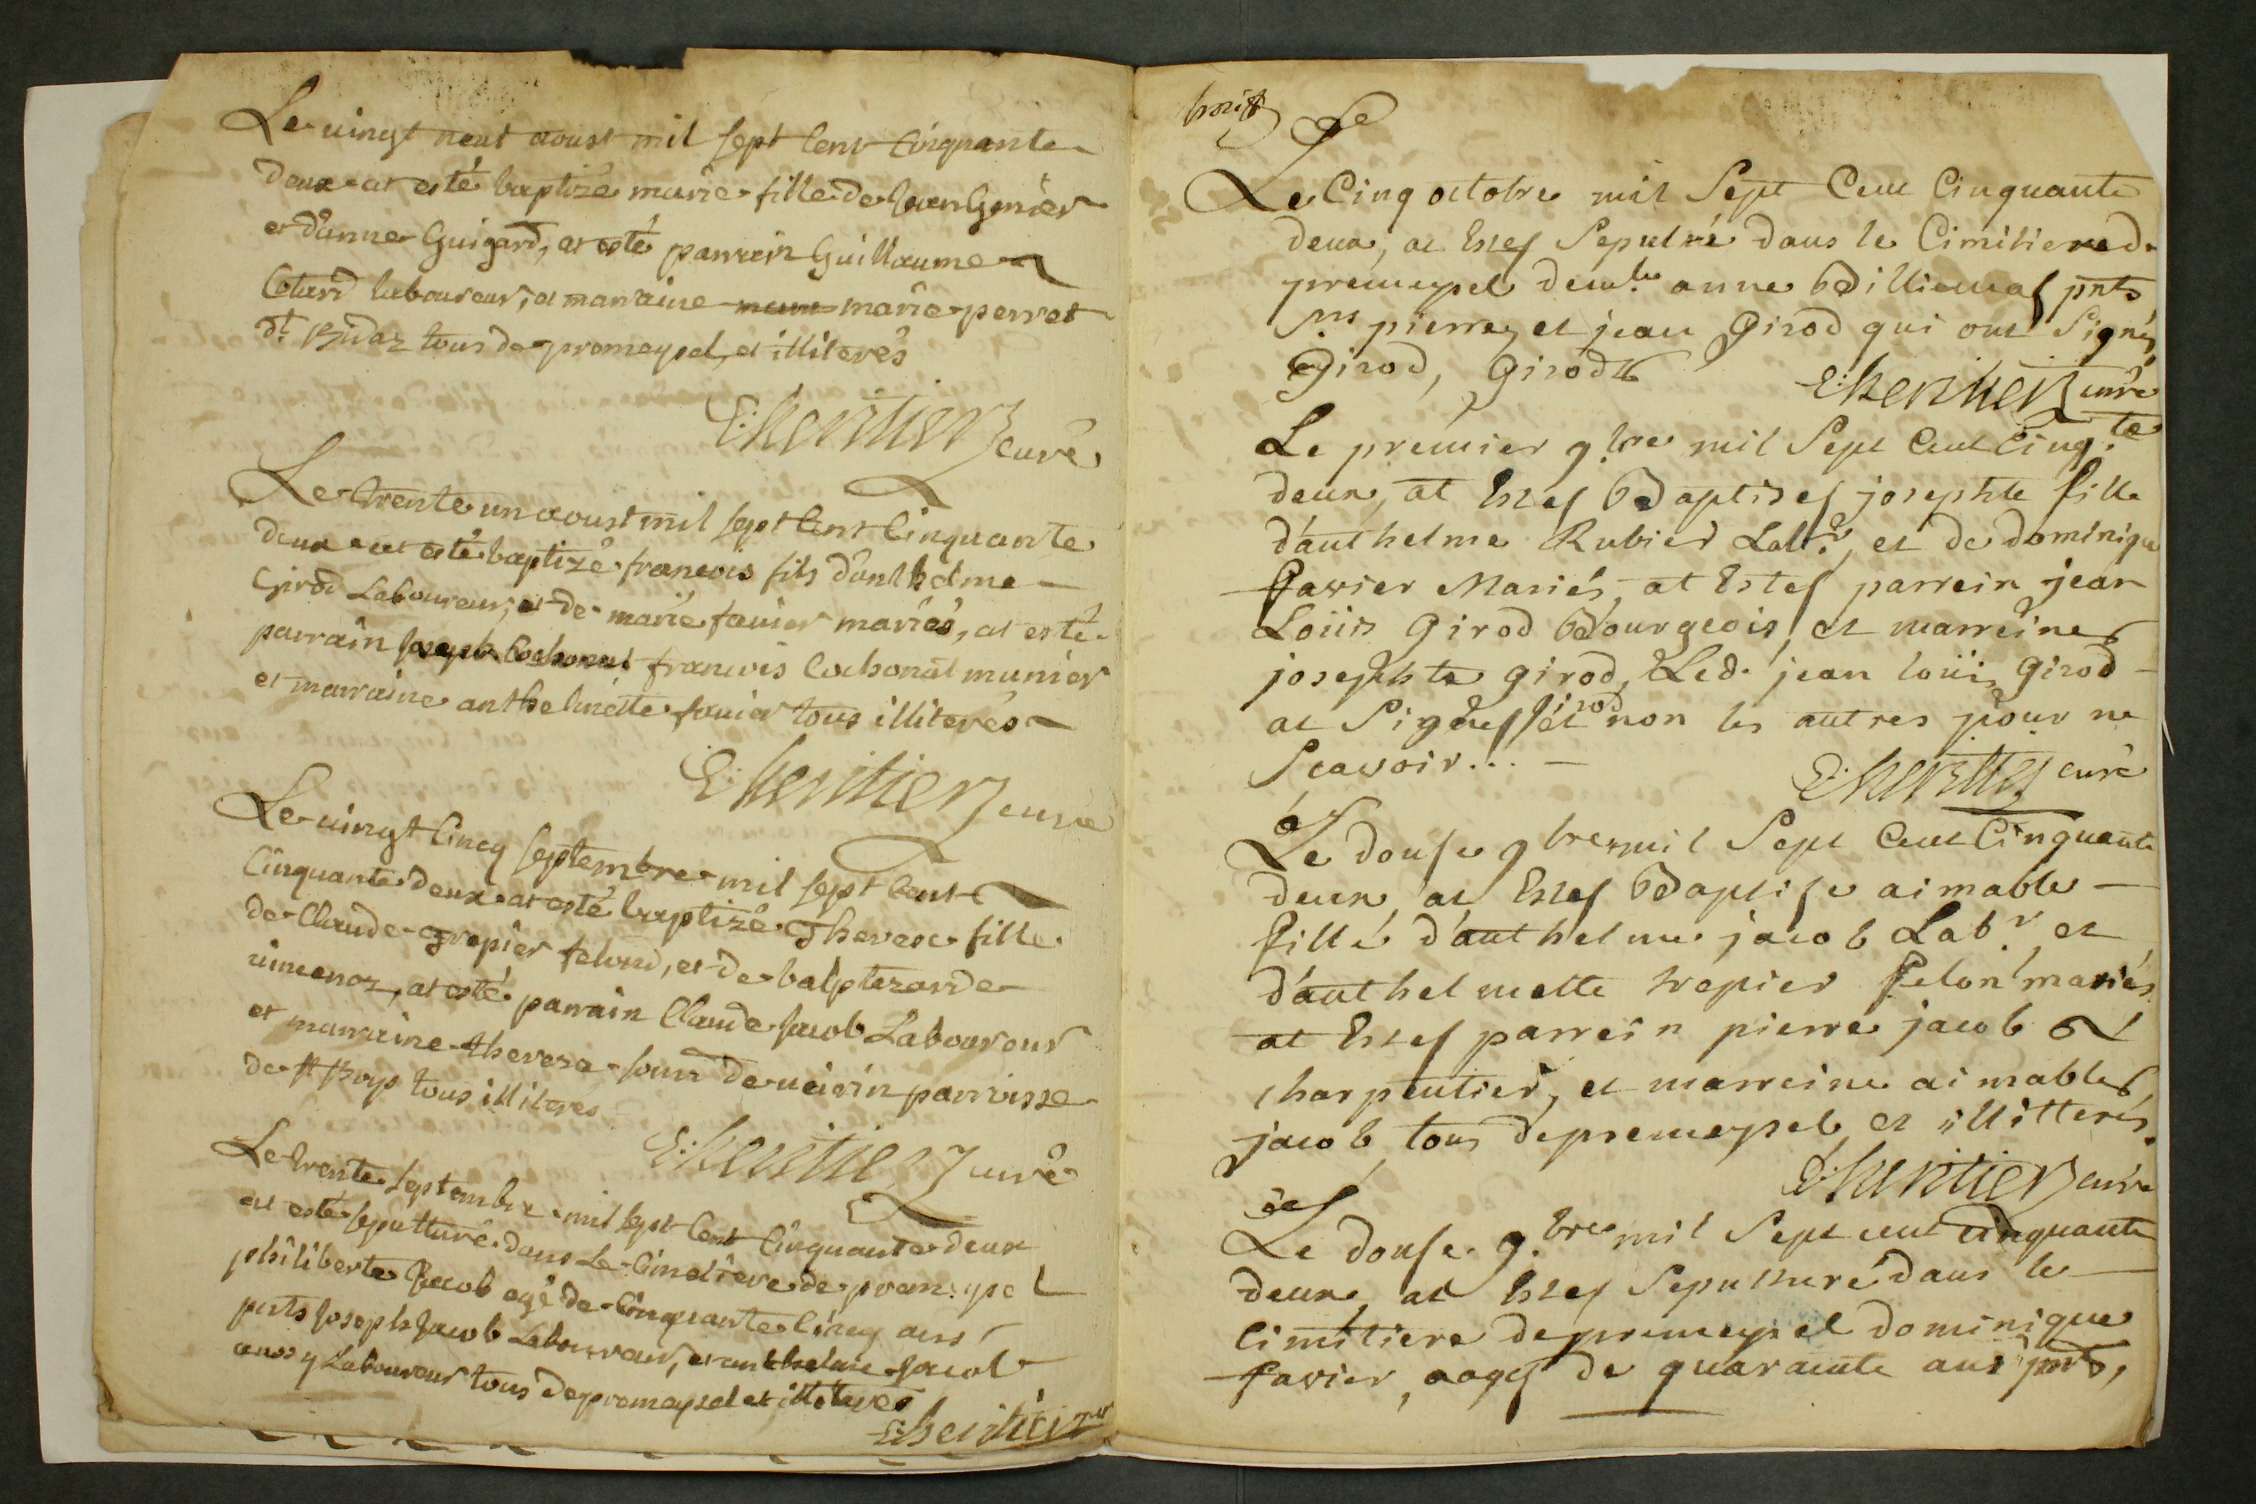 Le uingt neuf aoust mil sept Cent Cinquante
deux at esté baptizé marie fille de Jean Genier
et d'anne Guigard, at esté parrain Guillaume
Cotard laboureur, et marraine marie perret
dt Bidaz tous de premeysel, et illiterés
E: heritier curé
Le trente un aoust mil sept Cent Cinquante
deux at esté baptizé francois fils d'anthelme
Girod Laboureur, et de marie fauier mariés, at esté
parrain Joseph Cochonat francois Cochonat munier
et marraine anthelmette fauier tous illiterés
E: heritier curé
Le uingt Cincq septembre mil sept Cent
Cinquante deux at esté baptizé Therese fille
de Claude trepier felond, et de balptezarde
uimenoz, at esté parrain Claude Jacob Laboureur
et marraine theresa de ueirin parroisse
de st Boys tous illiterés
E: heritier curé
Le trente septembre mil sept Cent Cinquante deux
at esté sepulturé dans Le Cimetiere de premeysel
philiberte Jacob agé de Cinquante Cincq ans
pnts Joseph Jacob Laboureur, et anthelme Jacob
aussy Laboureur tous de premeysel et illiterés
E: heritier
Le
Le Cinq octobre mil Sept Cent Cinquante
deux, at Estes Sepulné dans le Cimitiere de
premeysel demlle anne Billiemaz pnts
Srs pierre, et jean Girod qui ont Signés
Girod, Girod
E: heritier curé
Le prémier 9.bre mil Sept Cent Cinq.te
deux, at Estes Baptises josephte fille
d'anthelme Rubier Labr, et de dominique
favier Mariés, at Estes parrein jean
Loüis Girod Bourgeois, et marreine
josephte girod, Led. jean loüis Girod
at Signes Girod et non les autres pour ne
Scavoir...
E: heritier curé
Le douse 9bre mil Sept Cent Cinquante
deux, at Estes Baptise aimable
fille d'anthelme jacob Labr. et
d'anthelmette trepier felon mariés
at Estes parrein pierre jacob
charpentier, et marreine aimable
jacob tous de premeysel, et illitterés.
E: heritier curé
Le douse 9.bre mil Sept cent cinquante
deux, at Estes Sepulturé dans le
Cimitiere de premeysel dominique
favier, aages de quarante ans pnts,